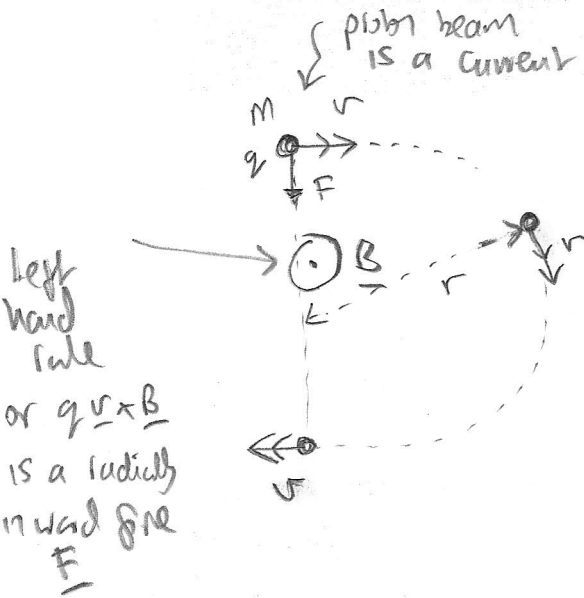 proton beam
is a current
m
v
q
F
B
r
v
Left
hand
rule
or q v × B
is a radially
inward force
F
v